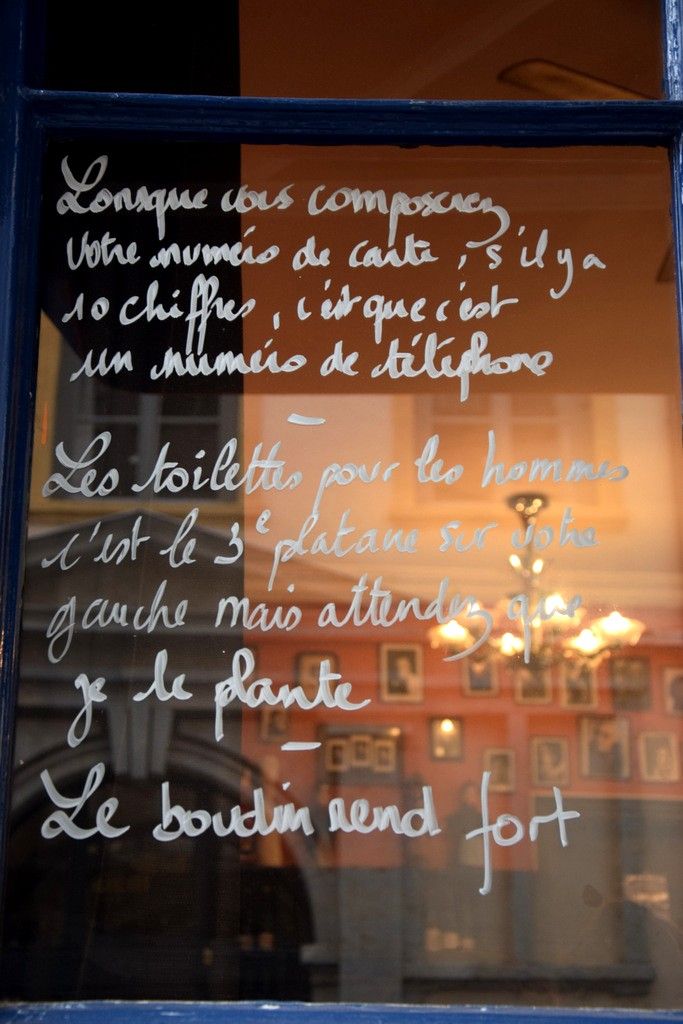 Lorsque vous composerez
Votre numéro de carte, s'il y a
10 chiffres, c'est que c'est
un numéro de téléphone
-
Les toilettes pour les hommes
c'est le 3e platane sur votre
gauche mais attendez que
je le plante
-
Le boudin rend fort